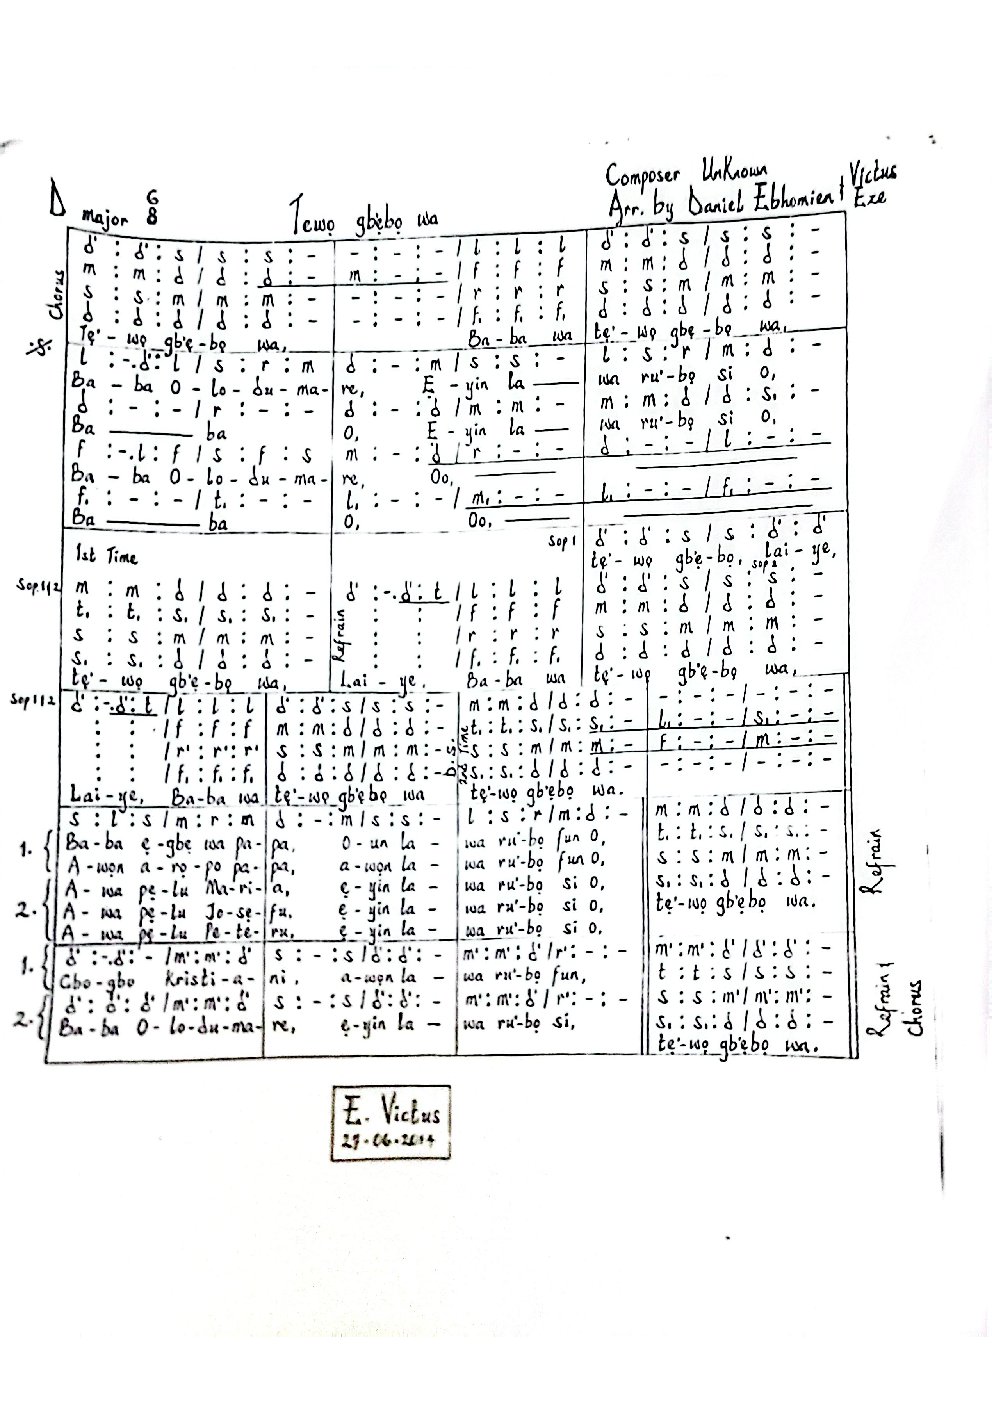 Composer Unknown
D major 6/8 Tẹwọ gbẹbọ wa Arr. by Daniel Ebhomien & Victus Eze
Chorus
d' : d' : s / s : s : - - : - : - / l : l : l d' : d' : s / s : s : -
m : m : d / d : d : - m : - : - / f : f : f m : m : d / d : d : -
s : s : m / m : m : - - : - : - / r : r : r s : s : m / m : m : -
d : d : d / d : d : - - : - : - / f, : f, : f, d : d : d / d : d : -
Tẹ' - wọ gb'ẹ - bọ wa, Ba - ba wa tẹ' - wọ gbẹ - bọ wa,
l : -.d' : l / s : r : m d : - : m / s : s : - l : s : r / m : d : -
Ba - ba O - lo - du - ma - re, E - yin la — wa ru' - bọ si O,
d : - : - / r : - : - d : - : d / m : m : - m : m : d / d : s, : -
Ba — ba O, E - yin la — wa ru' - bọ si O,
f : -.l : f / s : f : s m : - : d / r : - : - d : - : - / l : - : -
Ba - ba O - lo - du - ma - re, Oo,
f, : - : - / t, : - : - l, : - : - / m, : - : - l, : - : - / f, : - : -
Ba — ba O, Oo, —
Sop 1 d' : d' : s / s : d' : d'
1st Time tẹ' - wọ gb'ẹ - bọ, Lai - ye,
Sop 2
Sop. 1/2 m : m : d / d : d : - d' : -.d' : t / l : l : l d' : d' : s / s : s : -
t, : t, : s, / s, : s, : - : : / f : f : f m : m : d / d : d : -
Refrain
s : s : m / m : m : - : : / r : r : r s : s : m / m : m : -
s, : s, : d / d : d : - : : / f, : f, : f, d : d : d / d : d : -
tẹ' - wọ gb'ẹ - bọ wa, Lai - ye, Ba - ba wa tẹ' - wọ gb'ẹ - bọ wa,
Sop 1/2 d' : -.d' : t / l : l : l d' : d' : s / s : s : - m : m : d / d : d - : - : - / - : - : -
: : / f : f : f m : m : d / d : d : - t, : t, : s, / s, : s, : - l, : - : - / s, : - : -
D.S. 2nd Time
: : / r' : r' : r' s : s : m / m : m : - s : s : m / m : m : - f : - : - / m : - : -
: : / f, : f, : f, d : d : d / d : d : - s, : s, : d / d : d : - - : - : - / - : - : -
Lai - ye, Ba - ba wa tẹ' - wọ gb'ẹbọ wa tẹ' - wọ gb'ẹbọ wa.
s : l : s / m : r : m d : - : m / s : s : - l : s : r / m : d : - m : m : d / d : d : -
1. Ba - ba ẹ - gbẹ wa pa - pa, O - un la - wa ru' - bọ fun O, t, : t, : s, / s, : s, : -
A - wọn a - rọ - po pa - pa, a - wọn la - wa ru' - bọ fun O, s : s : m / m : m : -
2. A - wa pẹ - lu Ma - ri - a, ẹ - yin la - wa ru' - bọ si O, s, : s, : d / d : d : -
A - wa pẹ - lu Jo - sẹ - fu, ẹ - yin la - wa ru' - bọ si O, tẹ' - wọ gb'ẹbọ wa.
A - wa pẹ - lu Pe - te - ru, ẹ - yin la - wa ru' - bọ si O,
Refrain
1. d' : -.d' : - / m' : m' : d' s : - : s / d' : d' : - m' : m' : d' / r' : - : - m' : m' : d' / d' : d' : -
Gbo - gbo Kristi - a - ni, a - wọn la - wa ru' - bọ fun, t : t : s / s : s : -
2. d' : d' : d' / m' : m' : d' s : - : s / d' : d' : - m' : m' : d' / r' : - : - s : s : m' / m' : m' : -
Ba - ba O - lo - du - ma - re, ẹ - yin la - wa ru' - bọ si, s, : s, : d / d : d : -
tẹ' - wọ gb'ẹbọ wa.
Refrain & Chorus
E. Victus
29-06-2014